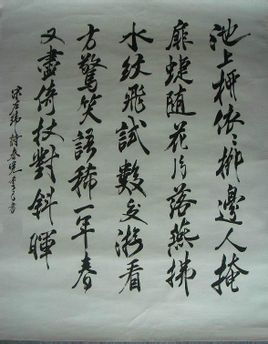 池上柳依々柳邊人掩
扉蝶随花片落燕拂
水紋飛試數交游看
方驚笑語稀一年春
又盡倚杖對斜暉
宋左緯詩春晚